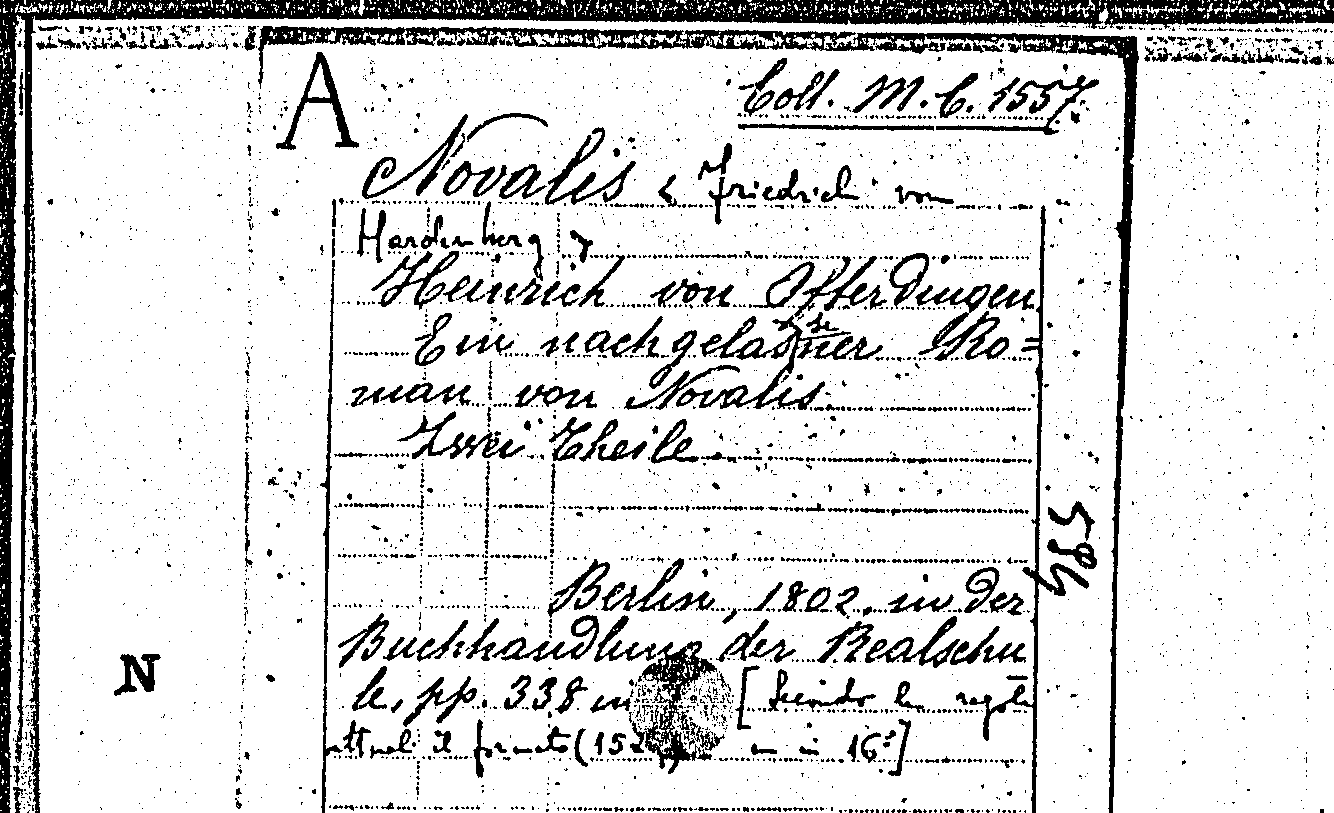 A
Coll. M. C. 1557.
Novalis < Friedrich von
Hardenberg >
Heinrich von Ofterdingen
Ein nachgelassner Ro=
man von Novalis.
Zwei Theile.
584
Berlin, 1802, in der
Buchhandlung der Realschu
le, pp. 338 in [Secondo le regole
attuali il formato (152 in 16°]
N